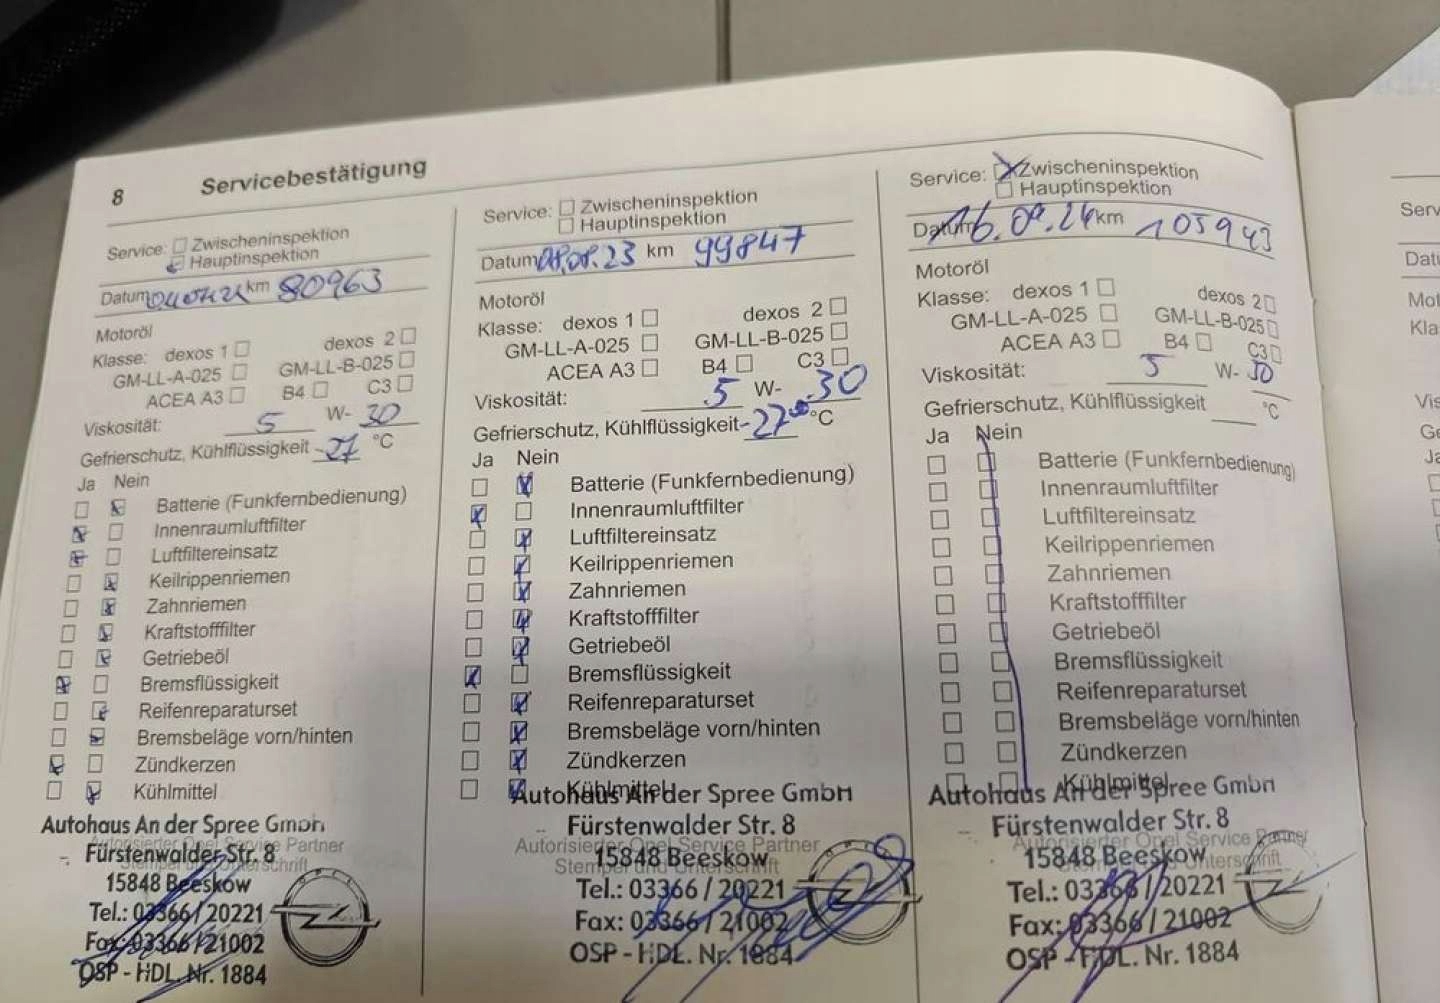 8 Servicebestätigung
Service: Zwischeninspektion
Hauptinspektion
Datum km 80963
Motoröl
Klasse: dexos 1 dexos 2
GM-LL-A-025 GM-LL-B-025
ACEA A3 B4 C3
Viskosität: 5 W- 30
Gefrierschutz, Kühlflüssigkeit -27 °C
Ja Nein
Batterie (Funkfernbedienung)
Innenraumluftfilter
Luftfiltereinsatz
Keilrippenriemen
Zahnriemen
Kraftstofffilter
Getriebeöl
Bremsflüssigkeit
Reifenreparaturset
Bremsbeläge vorn/hinten
Zündkerzen
Kühlmittel
Autohaus An der Spree GmbH
Autorisierter Opel Service Partner
Fürstenwalder Str. 8
Stempel und Unterschrift
15848 Beeskow
Tel.: 03366/20221
Fax: 03366/21002
OSP - HDL. Nr. 1884
OPEL
Service: Zwischeninspektion
Hauptinspektion
Datum 08.08.23 km 99847
Motoröl
Klasse: dexos 1 dexos 2
GM-LL-A-025 GM-LL-B-025
ACEA A3 B4 C3
Viskosität: 5 W- 30
Gefrierschutz, Kühlflüssigkeit -27 °C
Ja Nein
Batterie (Funkfernbedienung)
Innenraumluftfilter
Luftfiltereinsatz
Keilrippenriemen
Zahnriemen
Kraftstofffilter
Getriebeöl
Bremsflüssigkeit
Reifenreparaturset
Bremsbeläge vorn/hinten
Zündkerzen
Kühlmittel
Autohaus An der Spree GmbH
Fürstenwalder Str. 8
Autorisierter Opel Service Partner
15848 Beeskow
Stempel und Unterschrift
Tel.: 03366/20221
Fax: 03366/21002
OSP - HDL. Nr. 1884
OPEL
Service: Zwischeninspektion
Hauptinspektion
Datum 16.09.24 km 105943
Motoröl
Klasse: dexos 1 dexos 2
GM-LL-A-025 GM-LL-B-025
ACEA A3 B4 C3
Viskosität: 5 W- 30
Gefrierschutz, Kühlflüssigkeit °C
Ja Nein
Batterie (Funkfernbedienung)
Innenraumluftfilter
Luftfiltereinsatz
Keilrippenriemen
Zahnriemen
Kraftstofffilter
Getriebeöl
Bremsflüssigkeit
Reifenreparaturset
Bremsbeläge vorn/hinten
Zündkerzen
Kühlmittel
Autohaus An der Spree GmbH
Fürstenwalder Str. 8
Autorisierter Opel Service Partner
15848 Beeskow
Stempel und Unterschrift
Tel.: 03366/20221
Fax: 03366/21002
OSP - HDL. Nr. 1884